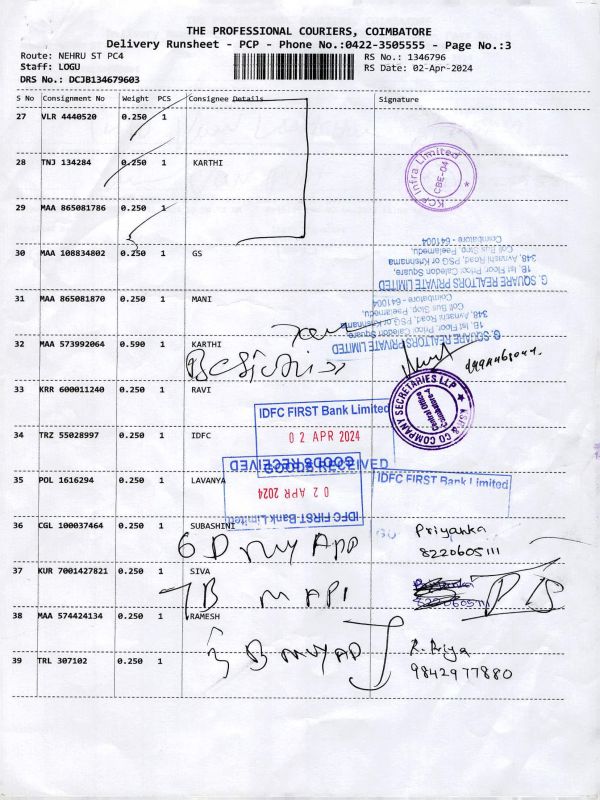 THE PROFESSIONAL COURIERS, COIMBATORE
Delivery Runsheet - PCP - Phone No.:0422-3505555 - Page No.:3
Route: NEHRU ST PC4
RS No.: 1346796
Staff: LOGU
RS Date: 02-Apr-2024
DRS No.: DCJB134679603
S No Consignment No Weight PCS Consignee Details Signature
27 VLR 4440520 0.250 1
28 TNJ 134284 0.250 1 KARTHI
KCP Infra Limited
CBE-04
29 MAA 865081786 0.250 1
30 MAA 108834802 0.250 1 GS
G. SQUARE REALTORS PRIVATE LIMITED
1B, Ist Floor, Pricol Caledon Square,
348, Avnashi Road, PSG or Krishnama
Coll Bus Stop, Peelamedu,
Coimbatore - 641004
31 MAA 865081870 0.250 1 MANI
G. SQUARE REALTORS PRIVATE LIMITED
1B, Ist Floor, Pricol Caledon Square
348, Avnashi Road, PSG or Krishnama
Coll Bus Stop, Peelamedu,
Coimbatore - 641004
32 MAA 573992064 0.590 1 KARTHI
33 KRR 600011240 0.250 1 RAVI
KSR & CO COMPANY SECRETARIES LLP
Central Office
Coimbatore-4
IDFC FIRST Bank Limited
02 APR 2024
GOODS RECEIVED
34 TRZ 55028997 0.250 1 IDFC
35 POL 1616294 0.250 1 LAVANYA
IDFC FIRST Bank Limited
02 APR 2024
GOODS RECEIVED
IDFC FIRST Bank Limited
36 CGL 100037464 0.250 1 SUBASHINI
Priyanka
8220605111
37 KUR 7001427821 0.250 1 SIVA
38 MAA 574424134 0.250 1 RAMESH
39 TRL 307102 0.250 1
R. Priya
9842977880